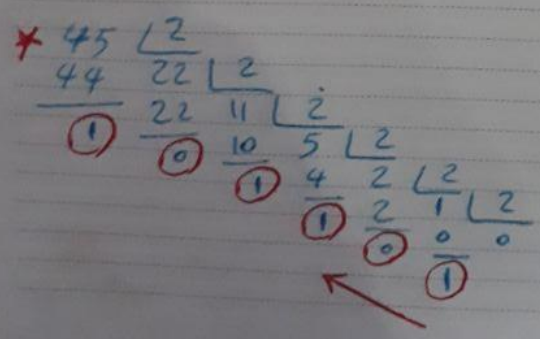 * 45 2
44 22 2
1 22 11 2
0 10 5 2
1 4 2 2
1 2 1 2
0 0 0
1